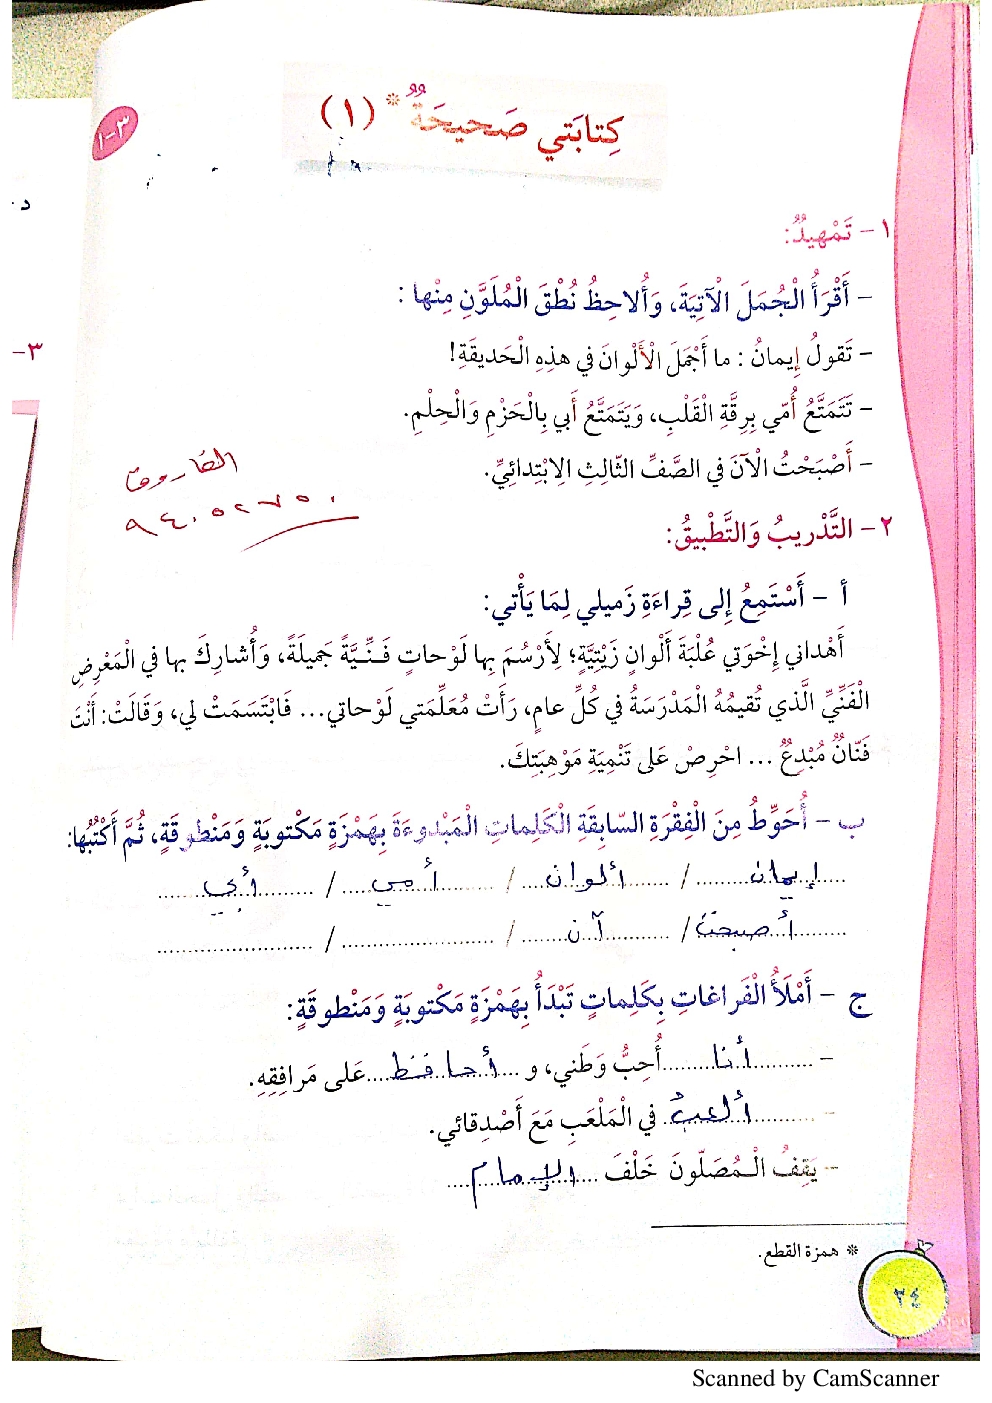 كِتابَتي صَحيحَةٌ * (١)
٣-١
١ - تَمْهيدٌ:
- أَقْرَأُ الْجُمَلَ الْآتِيَةَ، وَأُلاحِظُ نُطْقَ الْمُلَوَّنِ مِنْها :
- تَقولُ إيمانُ : ما أَجْمَلَ الْأَلْوانَ في هذِهِ الْحَديقَةِ!
- تَتَمَتَّعُ أُمّي بِرِقَّةِ الْقَلْبِ، وَيَتَمَتَّعُ أَبي بِالْحَزْمِ وَالْحِلْمِ.
- أَصْبَحْتُ الْآنَ في الصَّفِّ الثّالِثِ الِابْتِدائِيِّ.
الفاروق
٩٤٠٥٢٧٥٠
٢ - التَّدْريبُ وَالتَّطْبيقُ:
أ - أَسْتَمِعُ إِلى قِراءَةِ زَميلي لِمَا يَأْتي:
أَهْداني إِخْوَتي عُلْبَةَ أَلْوانٍ زَيْتِيَّةٍ؛ لِأَرْسُمَ بِها لَوْحاتٍ فَنِّيَّةً جَميلَةً، وَأُشارِكَ بِها في الْمَعْرِضِ
الْفَنِّيِّ الَّذي تُقيمُهُ الْمَدْرَسَةُ في كُلِّ عامٍ، رَأَتْ مُعَلِّمَتي لَوْحاتي... فَابْتَسَمَتْ لي، وَقَالَتْ: أَنْتَ
فَنّانٌ مُبْدِعٌ ... احْرِصْ عَلى تَنْمِيَةِ مَوْهِبَتِكَ.
ب - أُحَوِّطُ مِنَ الْفِقْرَةِ السّابِقَةِ الْكَلِماتِ الْمَبْدوءَةَ بِهَمْزَةٍ مَكْتوبَةٍ وَمَنْطوقَةٍ، ثُمَّ أَكْتُبُها:
إيمان / ألوان / أمي / أبي
أصبحت / آن /
ج - أَمْلَأُ الْفَراغاتِ بِكَلِماتٍ تَبْدَأُ بِهَمْزَةٍ مَكْتوبَةٍ وَمَنْطوقَةٍ:
- أنا أُحِبُّ وَطَني، و أحافظ عَلى مَرافِقِهِ.
- ألعب في الْمَلْعَبِ مَعَ أَصْدِقائي.
- يَقِفُ الْمُصَلّونَ خَلْفَ الإمام
* همزة القطع.
٢٤
د
٣-
Scanned by CamScanner